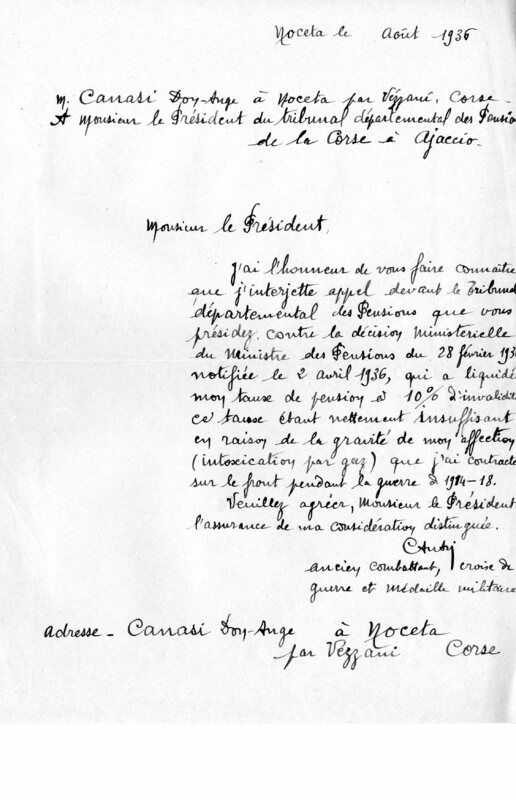 Noceta le Août 1936
M. Canasi Doy-Ange à Noceta par Vézzani, Corse -
A Monsieur le Président du tribunal départemental des Pensio
de la Corse à Ajaccio.
Monsieur le Président,
J'ai l'honneur de vous faire connaître
que j'interjette appel devant le Tribunal
départemental des Pensions que vous
présidez, contre la décision Ministerielle
du Ministre des Pensions du 28 février 193
notifiée le 2 avril 1936, qui a liquidé
mon tause de pension à 10% d'invalidit
ce tause étant nettement insuffisant
en raison de la gravité de mon affection
(intoxication par gaz) que j'ai contracté
sur le front pendant la guerre d 1914-18.
Veuillez agréer, Monsieur le Président
l'assurance de ma considération distinguée.
ancien combattant, croise de
guerre et médaille militaire
adresse - Canasi Doy-Ange à Noceta
par Vézzani Corse